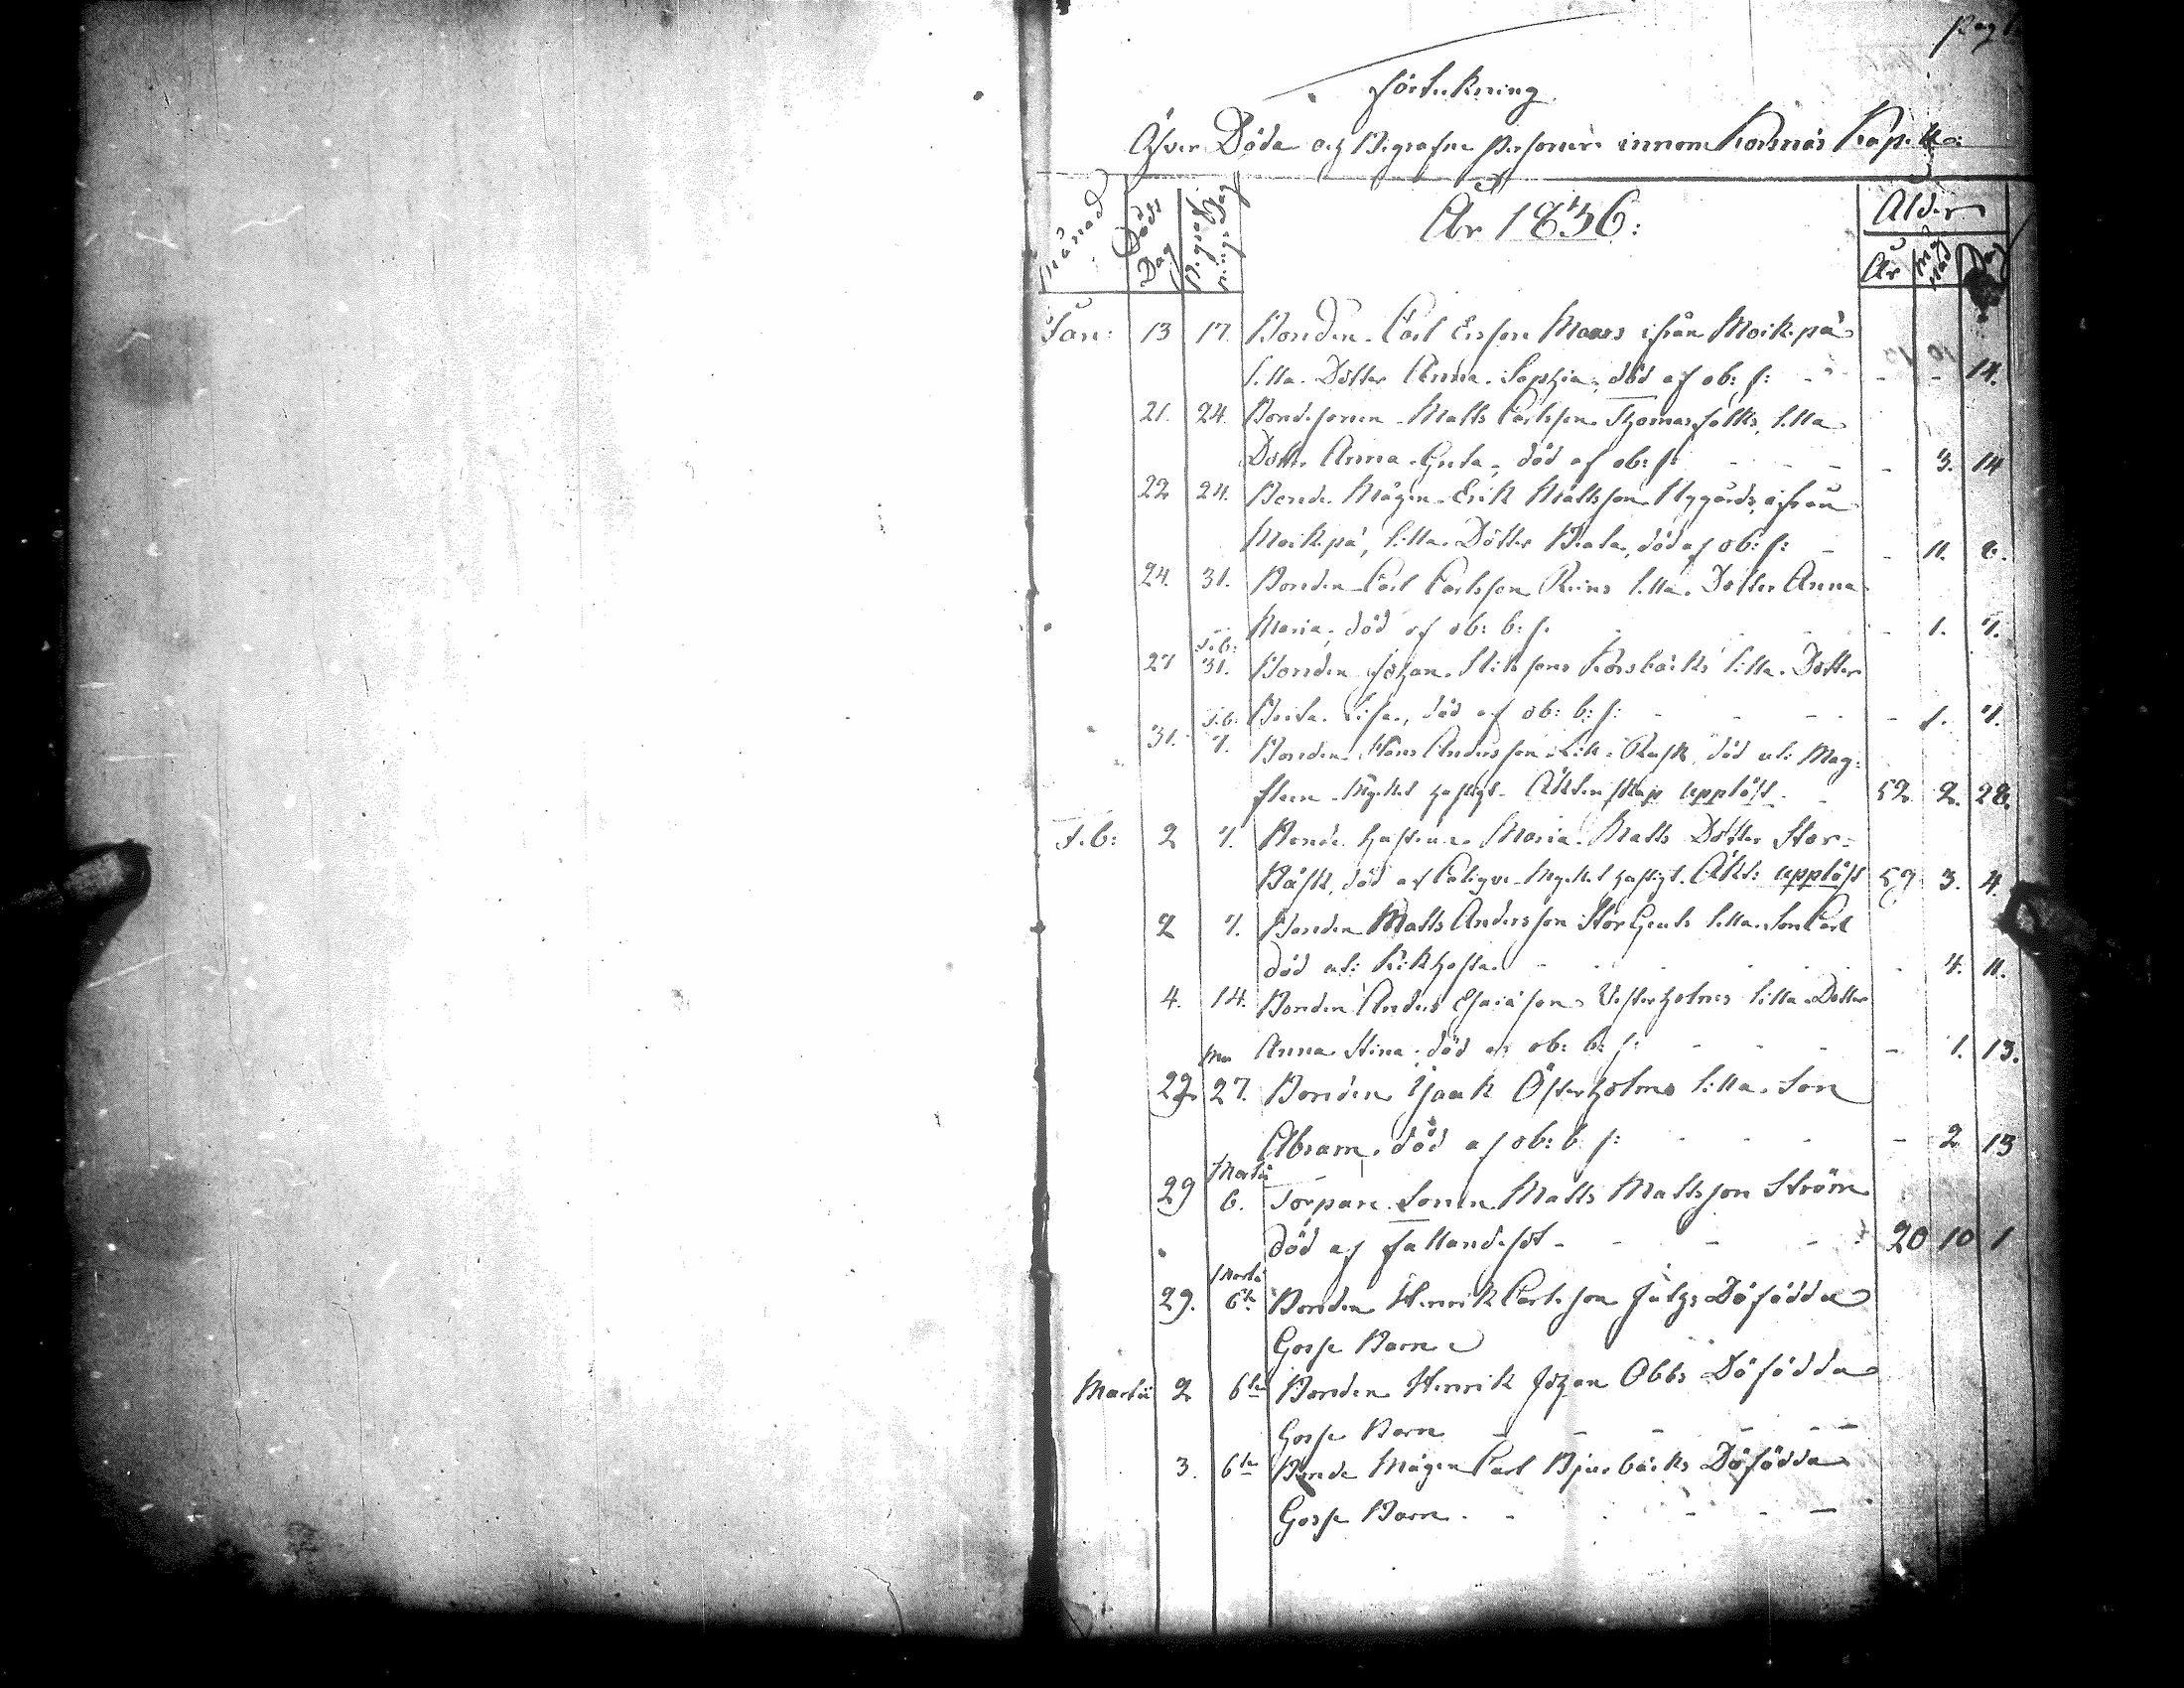 pag
Förtekning
Öfver Döda och Begrafne personer innom Korsnäs Kapell
Månad Döds Dag Begrafnings Dag År 1836: Ålder
År Månad Dag
Jan: 13 17. Bonden Carl Ersson Maars ifrån Moikipä
lilla Dotter Anna Sophia, död af ob: s: - - 14.
21. 24. Bondesonen Matts Carlsson Thomasfolks, lilla
Dotter Anna Greta, död af ob: s: - 3. 14
22 24. Bonde Mågen Erik Mattsson Nygårds, ifrån
Moikipä, lilla Dotter Beata, död af ob: s: - 11. 6.
24. 31. Bonden Carl Carlsson Reins lilla Dotter Anna
Maria, död af ob: b: s. - 1. 7.
27 31. Bonden Johan Korsbäcks lilla Dotter
Feb: Brita Lisa, död af ob: b: s: - 1. 7.
31. 7. Bonden Hans Andersson Lill-Rask, död uti Mag-
Mycket hastigt. Äktenskap upplöst. 52 2. 28.
Feb: 2 7. Bonde hustrun Maria Matts Dotter Stor-
Båsk, död af Mycket hastigt. Äkt: upplöst 59 3. 4.
2 7. Bonden Matts Andersson Storgeuts lilla Son Carl
död uti Kikhosta - 4. 11.
4. 14. Bonden Anders Esaiäson Vesterholms lilla Dotter
Anna Stina, död af ob: b: s: - 1. 13.
22. Mar 27. Bonden Isaak Österholms lilla Son
Abram, död af ob: b: s: - 2 13
29 Martii 6. Torpare Sonen Matts Mattsson Ström
död af Fallandesot - 20 10 1
29. Martii 6te Bonden Henrik Carlsson Juthas Döfödda
Gosse Barn
Martii 2 6te Bonden Henrik Johan Obbs Döfödda
Gosse Barn - - - - -
3. 6te Bonde Mågen Carl Bjurbäcks Döfödda
Gosse Barn. - - - - -